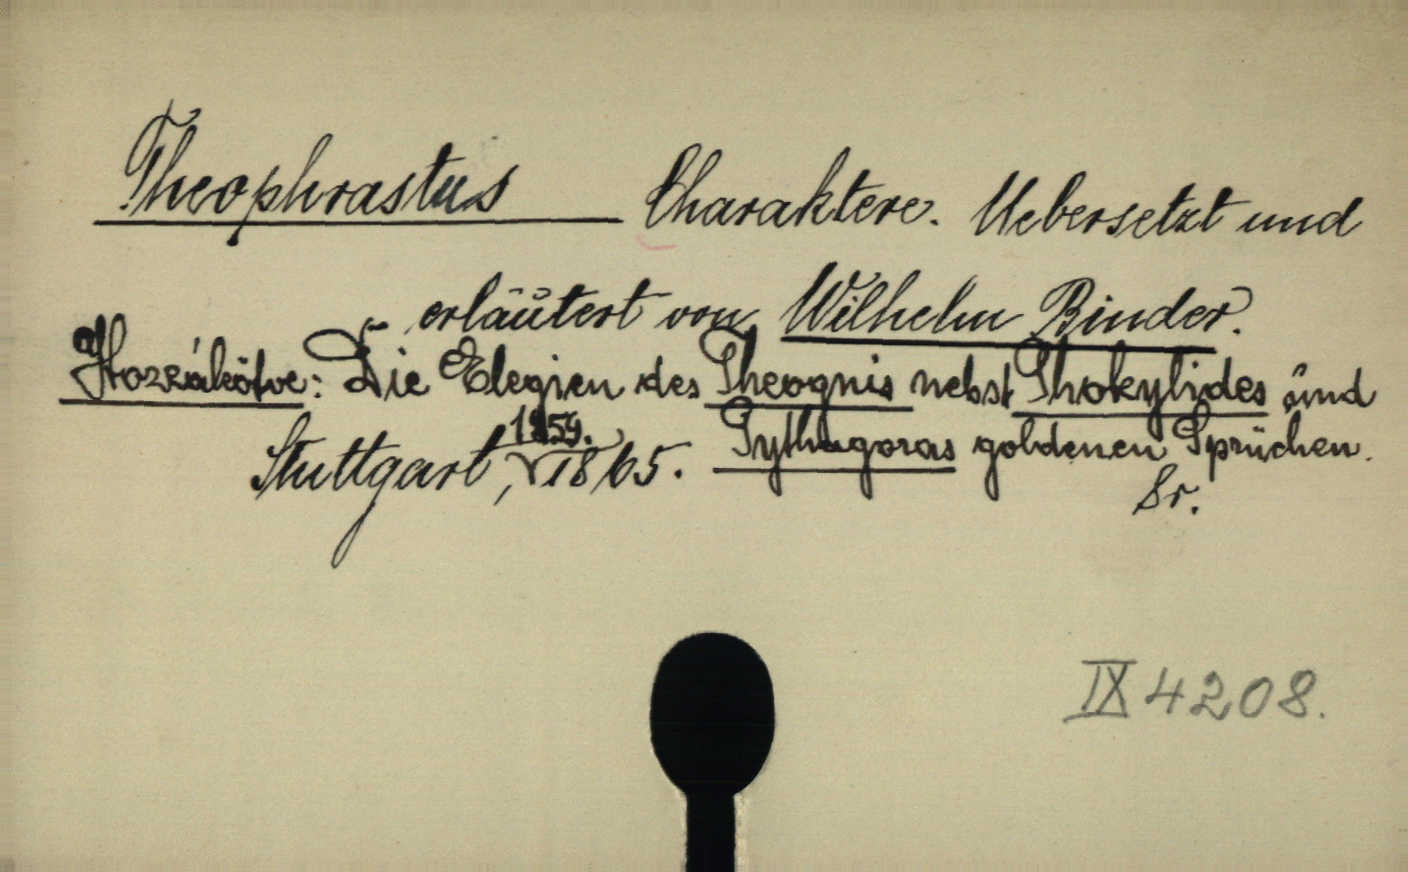 Theophrastus Charaktere. Uebersetzt und
erläutert von Wilhelm Binder.
Hozzákötve: Die Elegien des Theognis nebst Phokylides und
Pythagoras goldenen Sprüchen.
Stuttgart, 1859. 1865.
8r.
IX 4208.